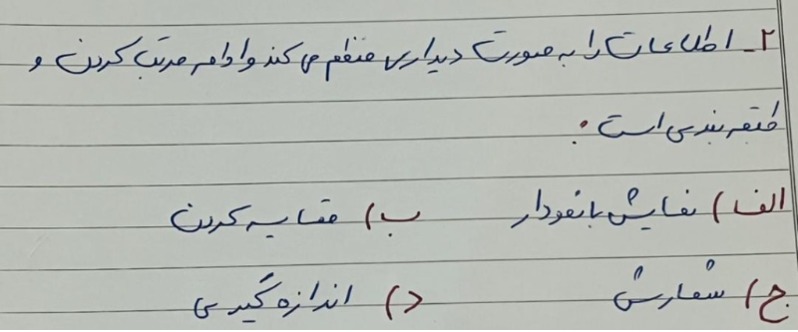 ۲_ اطلاعات را به صورت دیداری منظم می کند و ادامه مرتب کردن و
طبقه بندی است.
الف) نمایش با نمودار ب) مقایسه کردن
ج) شمارش د) اندازه گیری